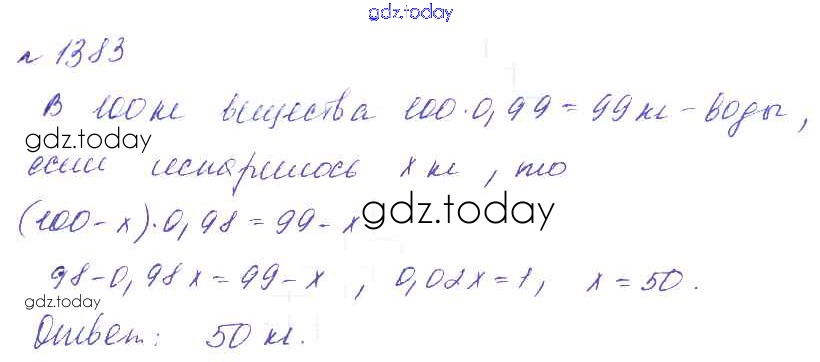 gdz.today
№ 1383
В 100 кг вещества 100·0,99=99кг-воды,
gdz.today
если испарилось x кг, то
(100-x)·0,98=99-x
gdz.today
98-0,98x=99-x, 0,02x=1, x=50.
gdz.today
Ответ: 50 кг.